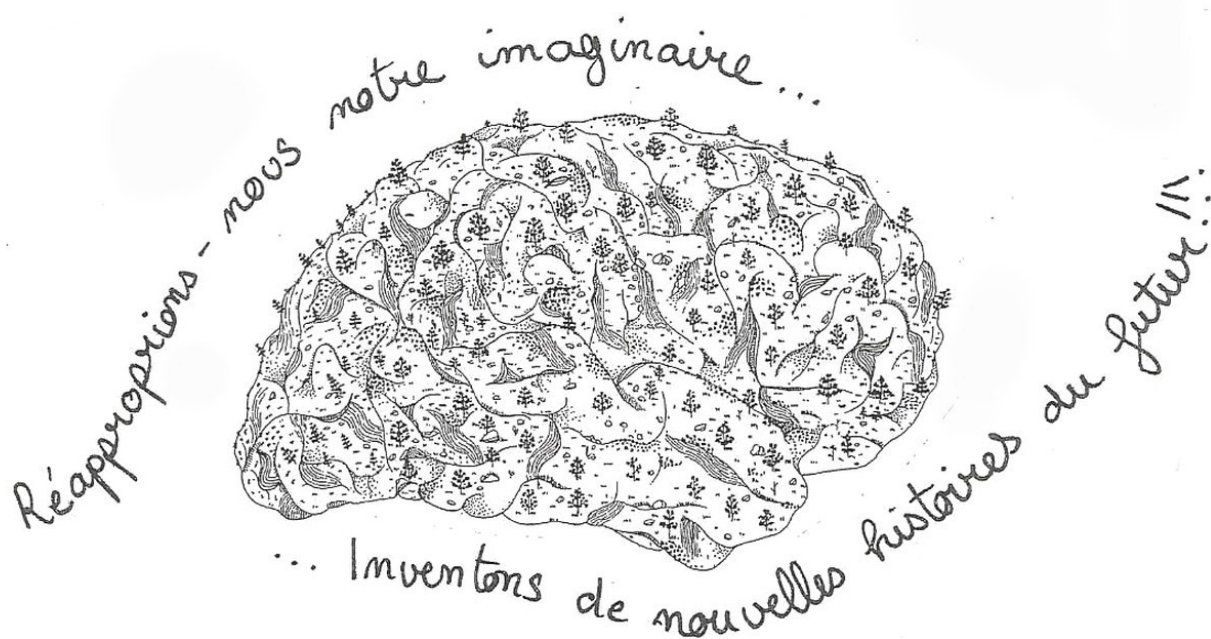 Réapproprions-nous notre imaginaire...
... Inventons de nouvelles histoires du futur!!!